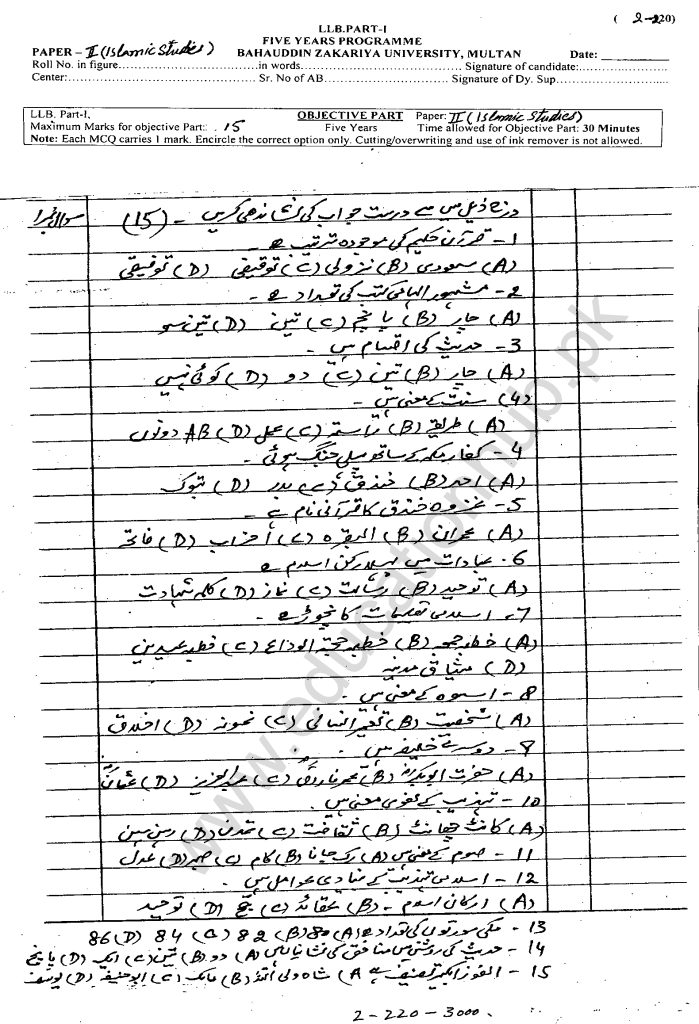 ( 2-220)
LLB.PART-I
FIVE YEARS PROGRAMME
PAPER – II (Islamic Studies) BAHAUDDIN ZAKARIYA UNIVERSITY, MULTAN Date: ________
Roll No. in figure..............................in words..............................Signature of candidate:..............................
Center:..............................Sr. No of AB..............................Signature of Dy. Sup..............................
LLB. Part-I, OBJECTIVE PART Paper: II (Islamic Studies)
Maximum Marks for objective Part: 15 Five Years Time allowed for Objective Part: 30 Minutes
Note: Each MCQ carries 1 mark. Encircle the correct option only. Cutting/overwriting and use of ink remover is not allowed.
سوال نمبر 1 درج ذیل میں سے درست جواب کی نشاندھی کریں - (15)
1- قرآن حکیم کی موجودہ ترتیب ہے -
(A) سعودی (B) نزولی (C) توقیفی (D) توفیقی
2- مشہور الہامی کتب کی تعداد ہے -
(A) چار (B) پانچ (C) تین (D) تین سو
3- حدیث کی اقسام ہیں -
(A) چار (B) تین (C) دو (D) کوئی نہیں
(4) سنت کے معنی ہیں -
(A) طریقہ (B) راستہ (C) عمل (D) AB دونوں
4- کفار مکہ کے ساتھ پہلی جنگ ہوئی -
(A) احد (B) خندق (C) بدر (D) تبوک
5- غزوہ خندق کا قرآنی نام ہے -
(A) عمران (B) البقرہ (C) احزاب (D) فاتحہ
6- عبادات میں پہلا رکن اسلام ہے
(A) توحید (B) رسالت (C) نماز (D) کلمہ شہادت
7- اسلامی تعلیمات کا نچوڑ ہے -
(A) خطبہ جمعہ (B) خطبہ حجۃ الوداع (C) خطبہ عیدین
(D) میثاق مدینہ
8- اسوہ کے معنی ہیں -
(A) شخصیت (B) تعمیر انسانی (C) نمونہ (D) اخلاق
9- دوسرے خلیفہ ہیں -
(A) حضرت ابوبکرؓ (B) عمر فاروقؓ (C) عبدالعزیز (D) عثمانؓ
10- تہذیب کے لغوی معنی ہیں -
(A) کانٹ چھانٹ (B) ثقافت (C) تمدن (D) رہن سہن
11- صوم کے معنی ہیں (A) رک جانا (B) کام (C) صبر (D) عدل
12- اسلامی تہذیب کے بنیادی عوامل ہیں -
(A) ارکان اسلام - (B) عقائد (C) حج (D) توحید
13- مکی سورتوں کی تعداد ہے (A) 80 (B) 82 (C) 84 (D) 86
14- حدیث کی روشنی میں منافق کی نشانیاں ہیں (A) دو (B) تین (C) ایک (D) پانچ
15- الفوز الکبیر تصنیف ہے (A) شاہ ولی اللہ (B) مالک (C) ابو حنیفہ (D) یوسف
2-220-3000.
www.educationhub.pk